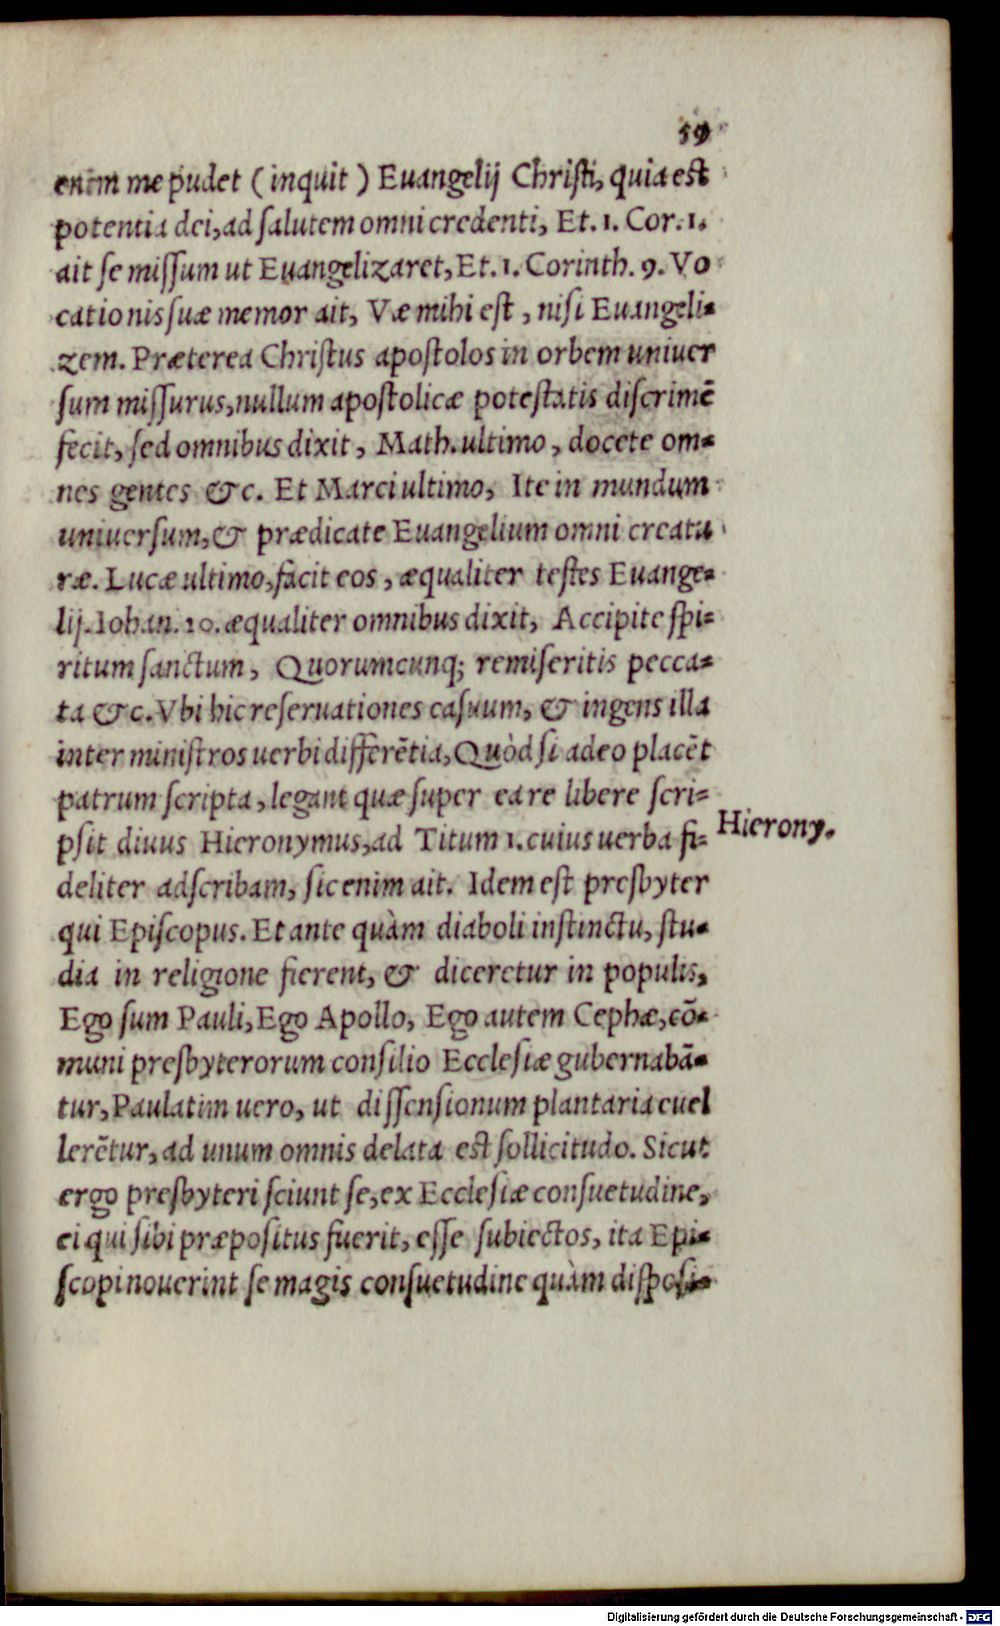 59
enim me pudet (inquit) Euangelij Christi, quia est
potentia dei, ad salutem omni credenti, Et. 1. Cor. 1.
ait se missum ut Euangelizaret, Et. 1. Corinth. 9. Vo
cationis suæ memor ait, Væ mihi est, nisi Euangeli=
zem. Præterea Christus apostolos in orbem uniuer
sum missurus, nullum apostolicæ potestatis discrimē
fecit, sed omnibus dixit, Math. ultimo, docete om=
nes gentes &c. Et Marci ultimo, Ite in mundum
uniuersum, & prædicate Euangelium omni creatu
ræ. Lucæ ultimo, facit eos, æqualiter testes Euange=
lij. Iohan. 20. æqualiter omnibus dixit, Accipite spi=
ritum sanctum, Quorumcunq; remiseritis pecca=
ta &c. Vbi hic reseruationes casuum, & ingens illa
inter ministros uerbi differētia, Quòd si adeo placēt
patrum scripta, legant quæ super ea re libere scri=
psit diuus Hieronymus, ad Titum 1. cuius uerba fi=
Hierony.
deliter adscribam, sic enim ait. Idem est presbyter
qui Episcopus. Et ante quàm diaboli instinctu, stu=
dia in religione fierent, & diceretur in populis,
Ego sum Pauli, Ego Apollo, Ego autem Cephæ, cō=
muni presbyterorum consilio Ecclesiæ gubernabā=
tur, Paulatim uero, ut dissensionum plantaria euel
lerētur, ad unum omnis delata est sollicitudo. Sicut
ergo presbyteri sciunt se, ex Ecclesiæ consuetudine,
ei qui sibi præpositus fuerit, esse subiectos, ita Epi=
scopi nouerint se magis consuetudine quàm disposi=
Digitalisierung gefördert durch die Deutsche Forschungsgemeinschaft - DFG